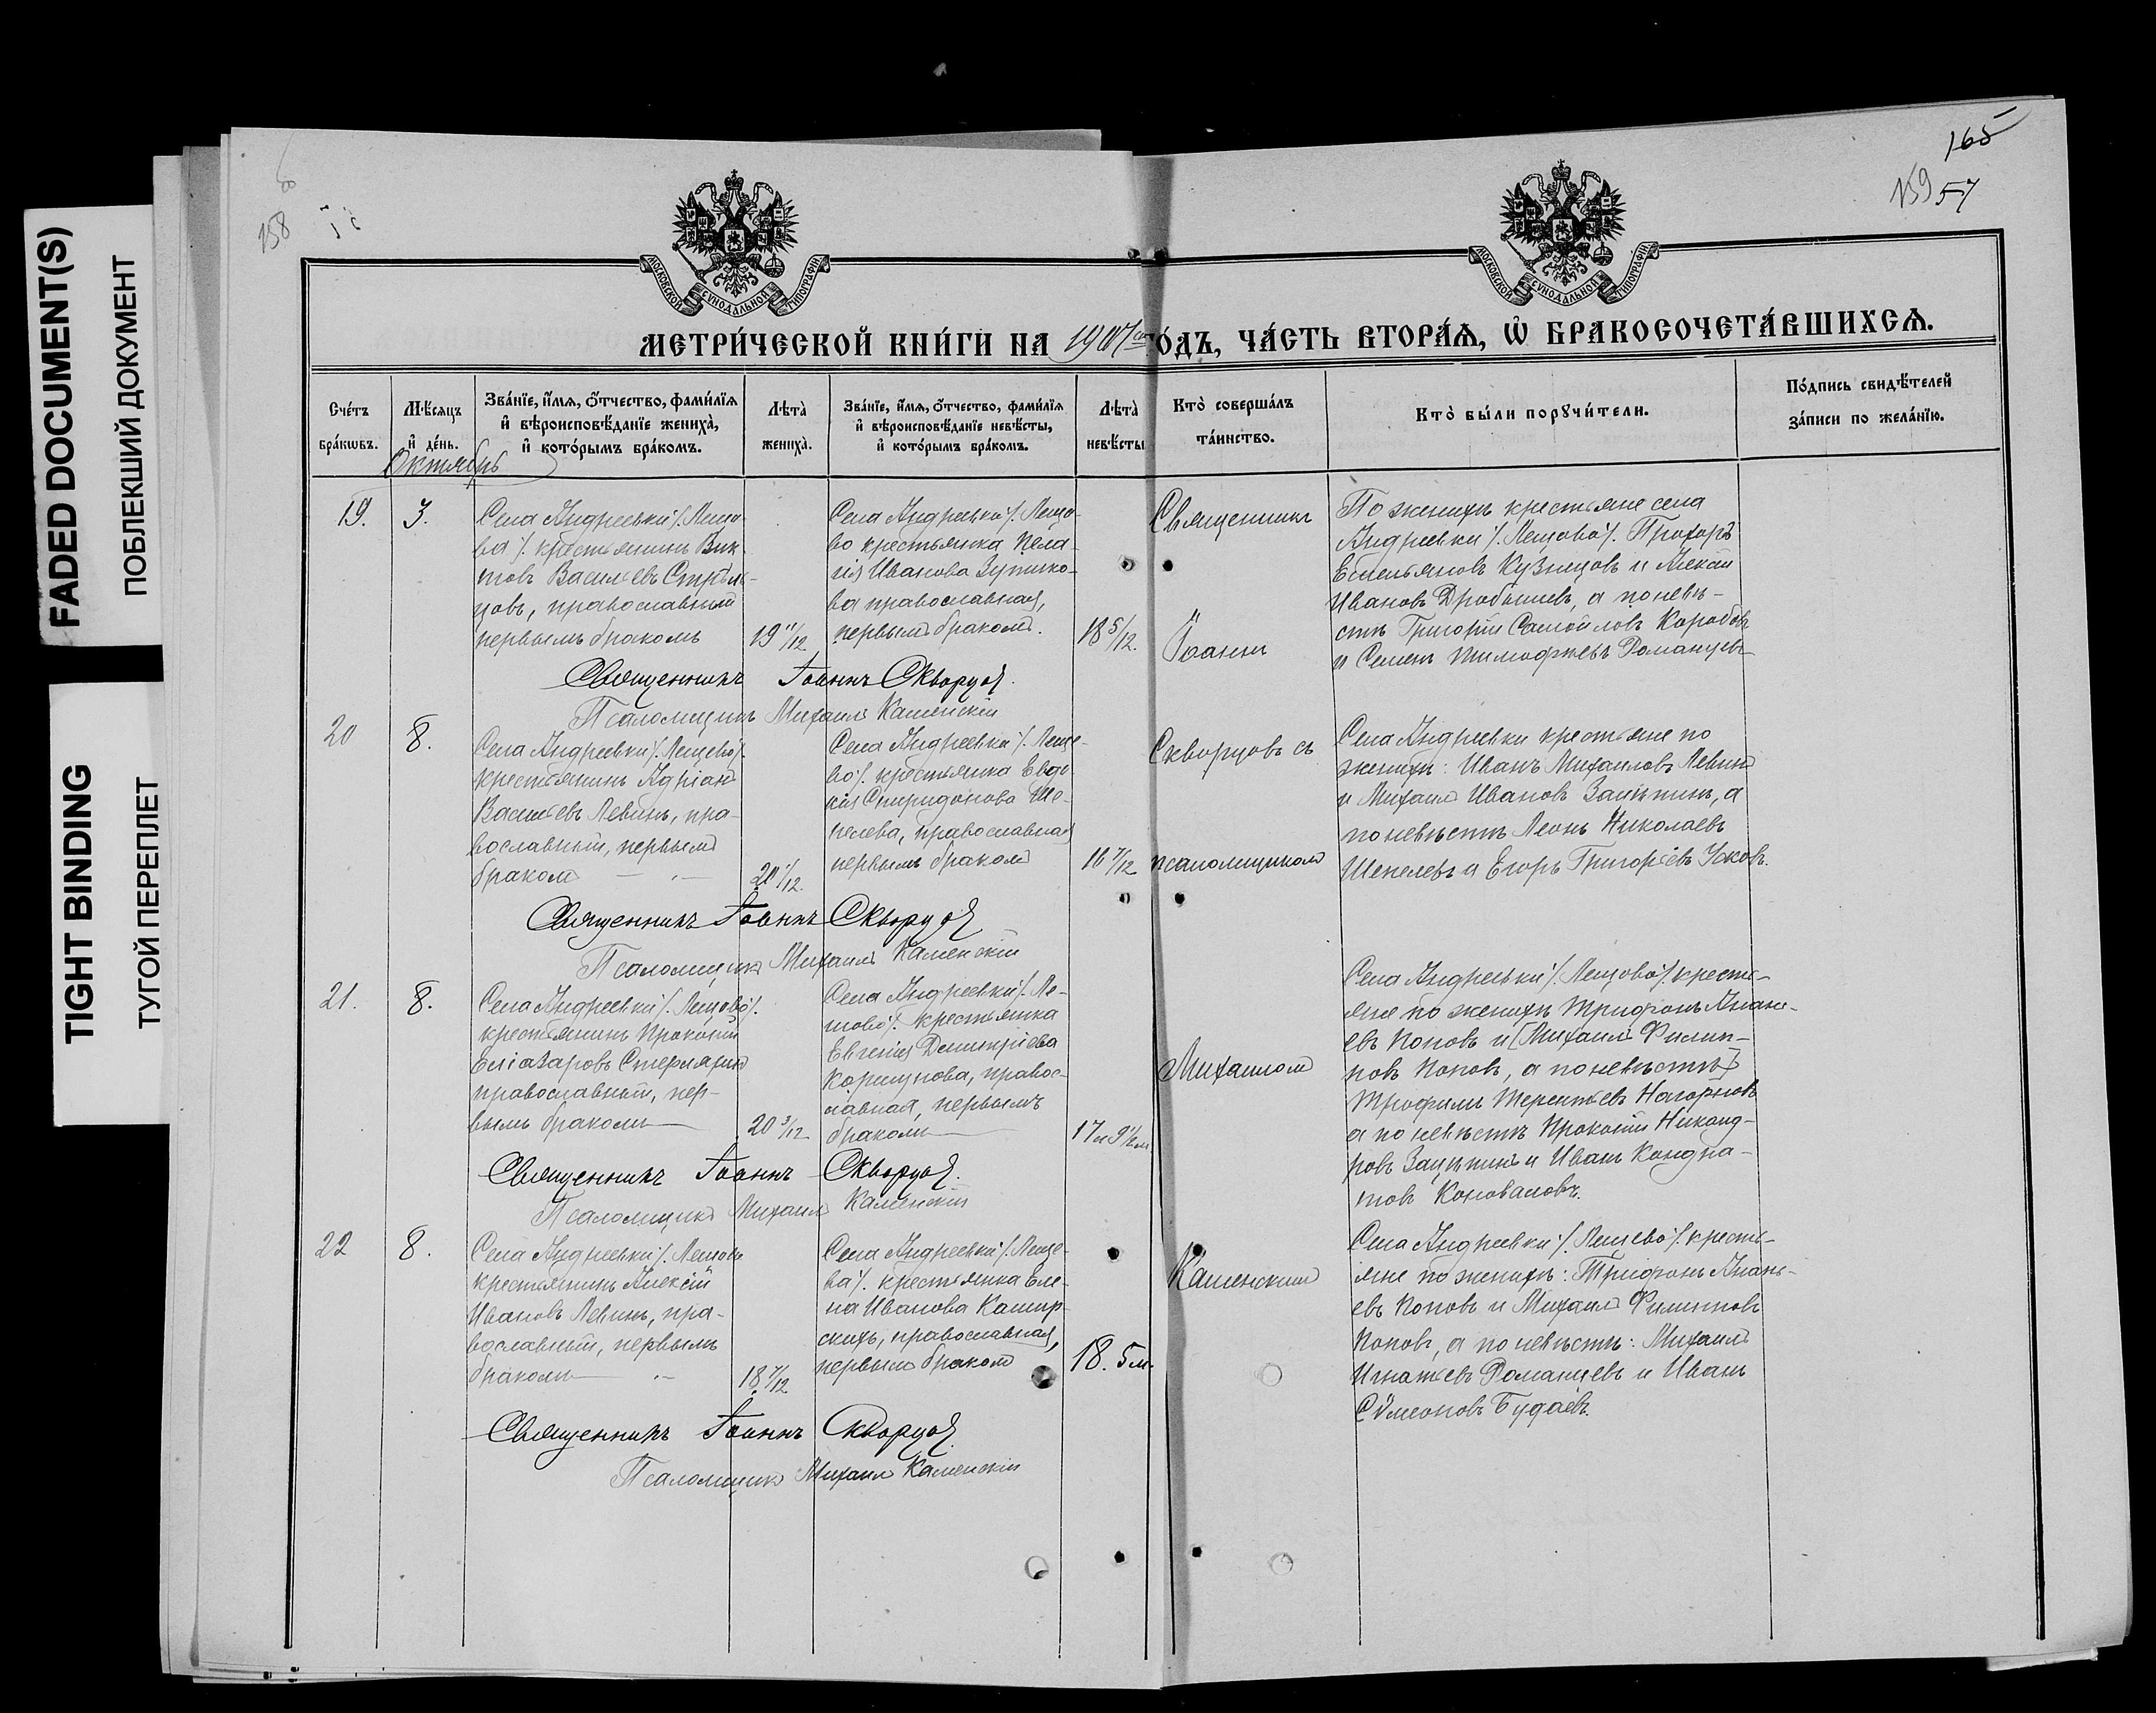 FADED DOCUMENT(S)
ПОБЛЕКШИЙ ДОКУМЕНТ
TIGHT BINDING
ТУГОЙ ПЕРЕПЛЕТ
158
165
159 57
МОСКОВСКОЙ СУНОДАЛЬНОЙ ТИПОГРАФІИ
МОСКОВСКОЙ СУНОДАЛЬНОЙ ТИПОГРАФІИ
МЕТРИ́ЧЕСКОЙ КНИ́ГИ НА 1907 го́дъ, ЧА́СТЬ ВТОРА́Я, Ѽ БРАКОСОЧЕТА́ВШИХСЯ.
Сче́тъ бра́кѡвъ.
Мѣ́сяцъ и҆ де́нь.
Зва́нїе, и҆́мя, ѻ҆́тчество, фами́лїя и҆ вѣроисповѣ́данїе жениха̀, и҆ кото́рымъ бра́комъ.
Лѣта̀ жениха̀.
Зва́нїе, и҆́мя, ѻ҆́тчество, фами́лїя и҆ вѣроисповѣ́данїе невѣ́сты, и҆ кото́рымъ бра́комъ.
Лѣта̀ невѣ́сты
Кто̀ соверша́лъ та́инство.
Кто̀ бы́ли порꙋчи́тели.
По́дпись свидѣ́телей за́писи по жела́нїю.
Октябрь
19.
3.
Села Андреевки /. Леще-
ва /. крестьянинъ Вик-
товъ Васильевъ Стрѣль-
цовъ, православный
первымъ бракомъ
19 11/12
Села Андреевки /. Леще-
во крестьянка Пела-
гія Иванова Зупико-
ва православная,
первымъ бракомъ.
18 5/12.
Священникъ
Іоаннъ
По женихѣ крестьяне села
Андреевки /. Лещово /. Прохоръ
Емельяновъ Кузнецовъ и Алексѣй
Ивановъ Дробышевъ, а по невѣ-
стѣ Григорій Самойловъ Коробовъ
и Семенъ Тимофеевъ Романцевъ
Священникъ Іоаннъ Скворцовъ.
Псаломщикъ Михаилъ Каменскій
20
8.
Села Андреевки /. Лещево /.
крестьянинъ Адріанъ
Васильевъ Левинъ, пра-
вославный, первымъ
бракомъ
20 1/12.
Села Андреевки /. Леще-
во /. крестьянка Евдо-
кія Спиридонова Ше-
пелева, православная
первымъ бракомъ
16 7/12
Скворцовъ съ
псаломщикомъ
Села Андреевки крестьяне по
женихѣ: Иванъ Михаиловъ Левинъ
и Михаилъ Ивановъ Зацѣпинъ, а
по невѣстѣ Леонъ Николаевъ
Шепелевъ и Егоръ Григорьевъ Усковъ.
Священникъ Іоаннъ Скворцовъ
Псаломщикъ Михаилъ Каменскій
21.
8.
Села Андреевки /. Лещово /.
крестьянинъ Прокопій
Еліазаровъ
православный, пер-
вымъ бракомъ
20 3/12
Села Андреевки /. Ле-
щово /. крестьянка
Евгенія Димитріева
Коршунова, правос-
лавная, первымъ
бракомъ
17 и 9 1/2 м.
Михаиломъ
Села Андреевки /. Лещово /. кресть-
яне по женихѣ Трифонъ Анань-
евъ Поповъ и [Михаилъ Филип-
повъ Поповъ, а по невѣстѣ]
Трофимъ Терентьевъ Нагорновъ
а по невѣстѣ ПрокопійНиканд-
ровъ Зацѣпинъ и Иванъ Кондра-
товъ Коноваловъ.
Священникъ Іоаннъ Скворцовъ.
Псаломщикъ Михаилъ Каменскій
22
8.
Села Андреевки /. Лещово
крестьянинъ Алексій
Ивановъ Левинъ, пра-
вославный, первымъ
бракомъ
18 7/12
Села Андреевки /. Леще-
ва /. крестьянка Еле-
на Иванова Кашир-
скихъ, православная,
первымъ бракомъ
18. 5 м.
Каменскимъ
Села Андреевки /. Лещево /. кресть-
яне по женихѣ: Трифонъ Анань-
евъ Поповъ и Михаилъ Филипповъ
Поповъ, а по невѣстѣ: Михаилъ
Игнатьевъ Романцевъ и Иванъ
Сѵмеоновъ Будаевъ.
Священникъ Іоаннъ Скворцовъ.
Псаломщикъ Михаилъ Каменскій